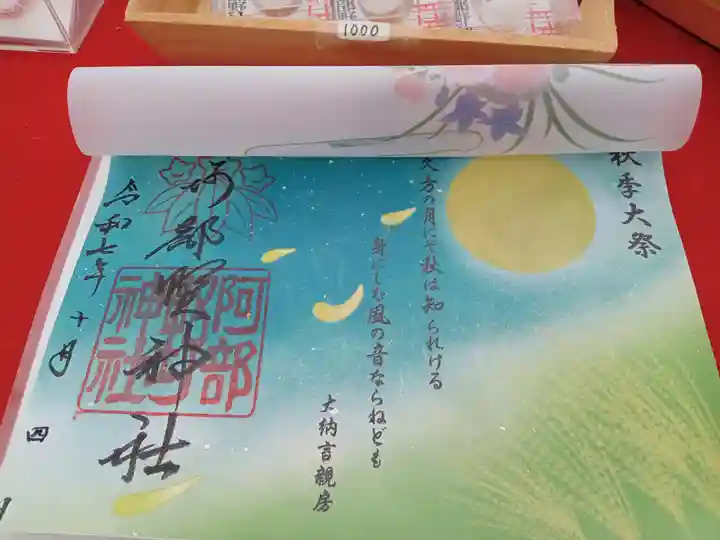 1000
秋季大祭
久方の月にぞ秋は知られける
身にしむ風の音ならねども
大納言親房
阿部野神社
阿部野神社
令和七年
十月
四